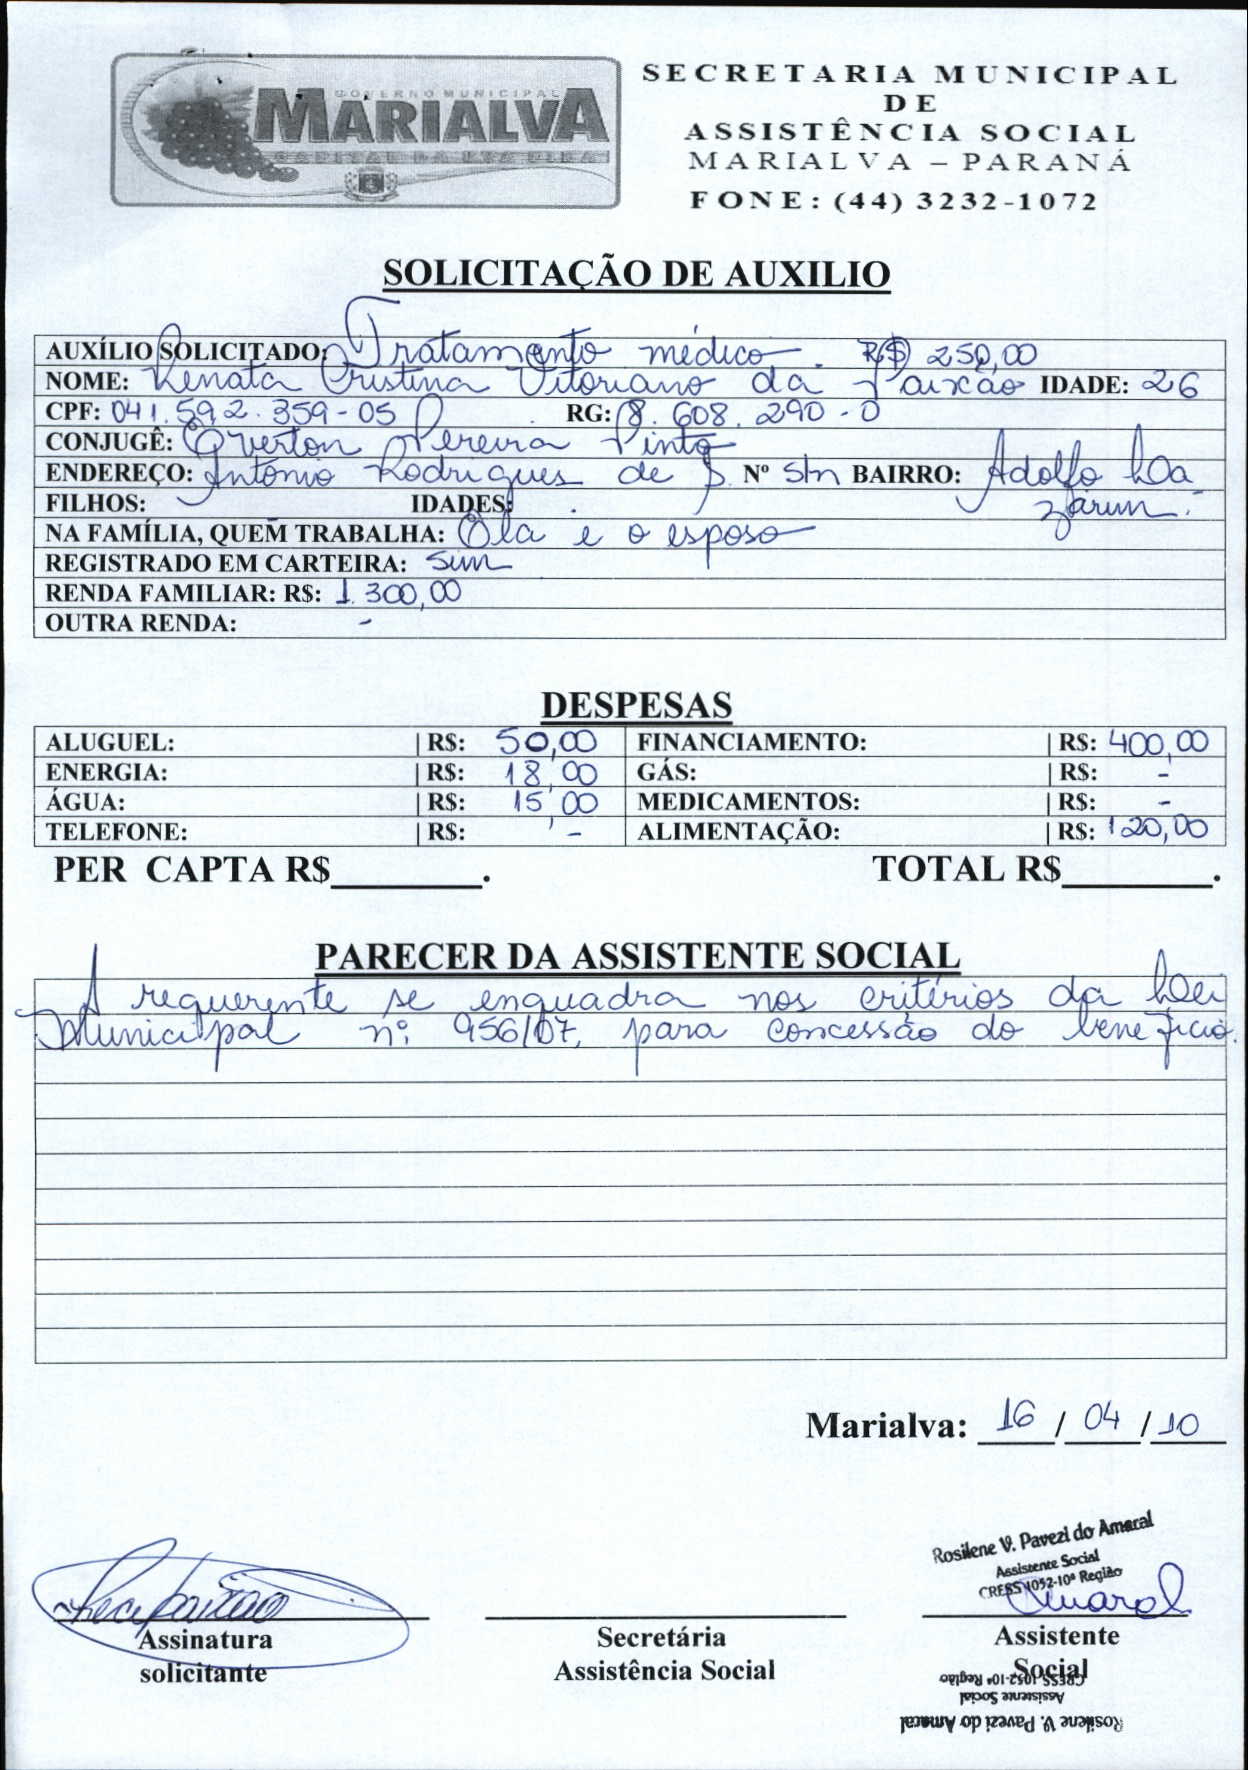 GOVERNO MUNICIPAL
MARIALVA
CAPITAL DA UVA FINA
SECRETARIA MUNICIPAL
DE
ASSISTÊNCIA SOCIAL
MARIALVA – PARANÁ
FONE: (44) 3232-1072
SOLICITAÇÃO DE AUXILIO
AUXÍLIO SOLICITADO: Tratamento médico. R$ 250,00
NOME: Renata Cristina Vitoriano da Paixão IDADE: 26
CPF: 041.592.359-05 RG: 8.608.290-0
CONJUGÊ: Everton Pereira Pinto
ENDEREÇO: Antônio Rodrigues de S. Nº s/n BAIRRO: Adolfo La
FILHOS: - IDADES: . zarim.
NA FAMÍLIA, QUEM TRABALHA: Ela e o esposo
REGISTRADO EM CARTEIRA: Sim
RENDA FAMILIAR: R$: 1.300,00
OUTRA RENDA: -
DESPESAS
ALUGUEL: | R$: 50,00 FINANCIAMENTO: | R$: 400,00
ENERGIA: | R$: 18,00 GÁS: | R$: -
ÁGUA: | R$: 15,00 MEDICAMENTOS: | R$: -
TELEFONE: | R$: - ALIMENTAÇÃO: | R$: 120,00
PER CAPTA R$________. TOTAL R$________.
PARECER DA ASSISTENTE SOCIAL
A requerente se enquadra nos critérios da Lei
Municipal nº 956/07, para concessão do benefício.
Marialva: 16 / 04 / 10
Rosilene V. Pavezi do Amaral
Assistente Social
CRESS 1052-10ª Região
Amaral
Assinatura Secretária Assistente
solicitante Assistência Social Social
CRESS 1052-10ª Região
Assistente Social
Rosilene V. Pavezi do Amaral